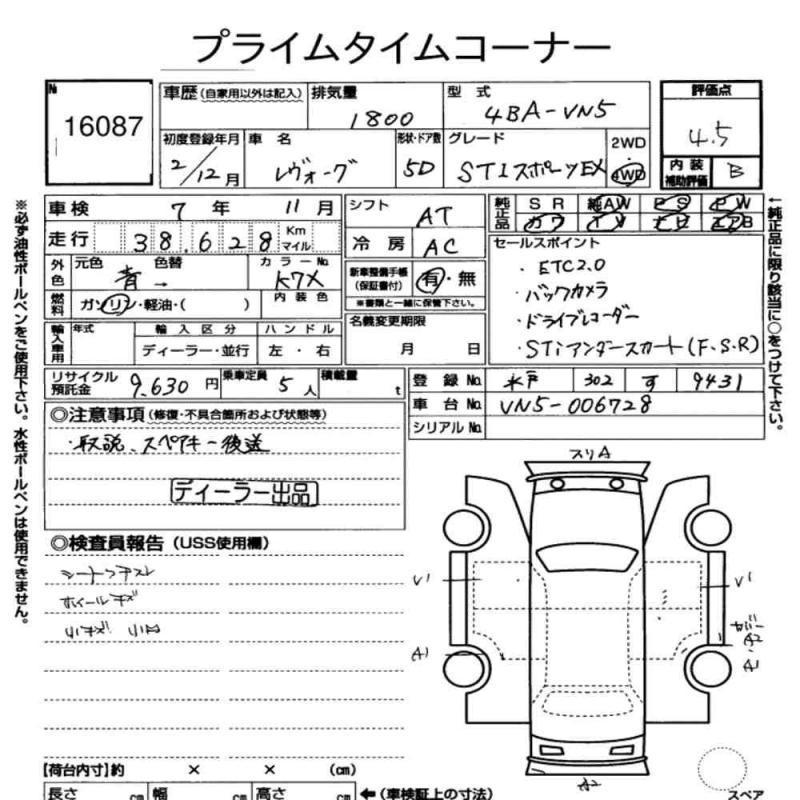 プライムタイムコーナー
№ 16087
車歴(自家用以外は記入) 排気量 1800 型式 4BA-VN5
評価点 4.5
初度登録年月 2/12月 車名 レヴォーグ 形状・ドア数 5D グレード STIスポーツEX 2WD 4WD
内装補助評価 B
車検 7年 11月 シフト AT
純正品 SR 純AW PS PW
カワ TV ナビ エアB
走行 38,628 Km マイル 冷房 AC
セールスポイント
・ETC2.0
・バックカメラ
・ドライブレコーダー
・STiアンダースカート(F.S.R)
外色 元色 青 → 色替 カラーNo. K7X
新車整備手帳(保証書付) 有・無
※書類と一緒に保管下さい。
燃料 ガソリン・軽油・( ) 内装色
名義変更期限 月 日
輸入車用 年式 輸入区分 ハンドル
ディーラー・並行 左・右
リサイクル預託金 9,630円 乗車定員 5人 積載量 t
登録No. 水戸 302 す 9431
車台No. VN5-006728
シリアルNo.
◎注意事項(修復・不具合箇所および状態等)
・取説、スペアキー後送
ディーラー出品
◎検査員報告(USS使用欄)
シートシミスレ
ホイールキズ
小キズ 小凹
スリA
V1
V1
A1
カバー A2・A1
A2
スペア
【荷台内寸】約 × × (cm)
長さ cm 幅 cm 高さ cm ←(車検証上の寸法)
※必ず油性ボールペンをご使用下さい。水性ボールペンは使用できません。
←純正品に限り該当に○をつけて下さい。